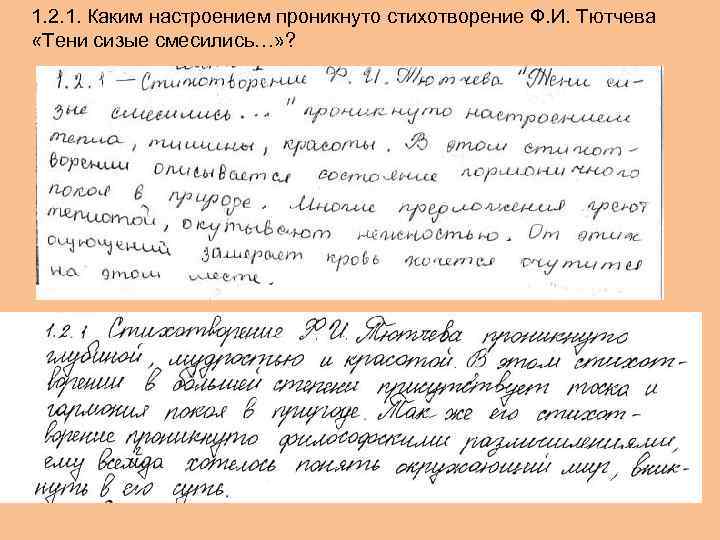 1. 2. 1. Каким настроением проникнуто стихотворение Ф. И. Тютчева
«Тени сизые смесились…» ?
1.2.1 – Стихотворение Ф. И. Тютчева "Тени си-
зые смесились..." проникнуто настроением
тепла, тишины, красоты. В этом стихот-
ворении описывается состояние гормоничного
покоя в природе. Многие предложения греют
теплотой, окутывают нежностью. От этих
ощющений замерает кровь хочется очутится
на этом месте.
1.2.1 Стихотворение Ф.И. Тютчева проникнуто
глубиной, мудростью и красотой. В этом стихот-
ворении в большей степени присутствует тоска и
гармония покоя в природе. Так же его стихот-
ворение проникнуто философскими размышлениями,
ему всегда хотелось понять окружающий мир, вник-
нуть в его суть.